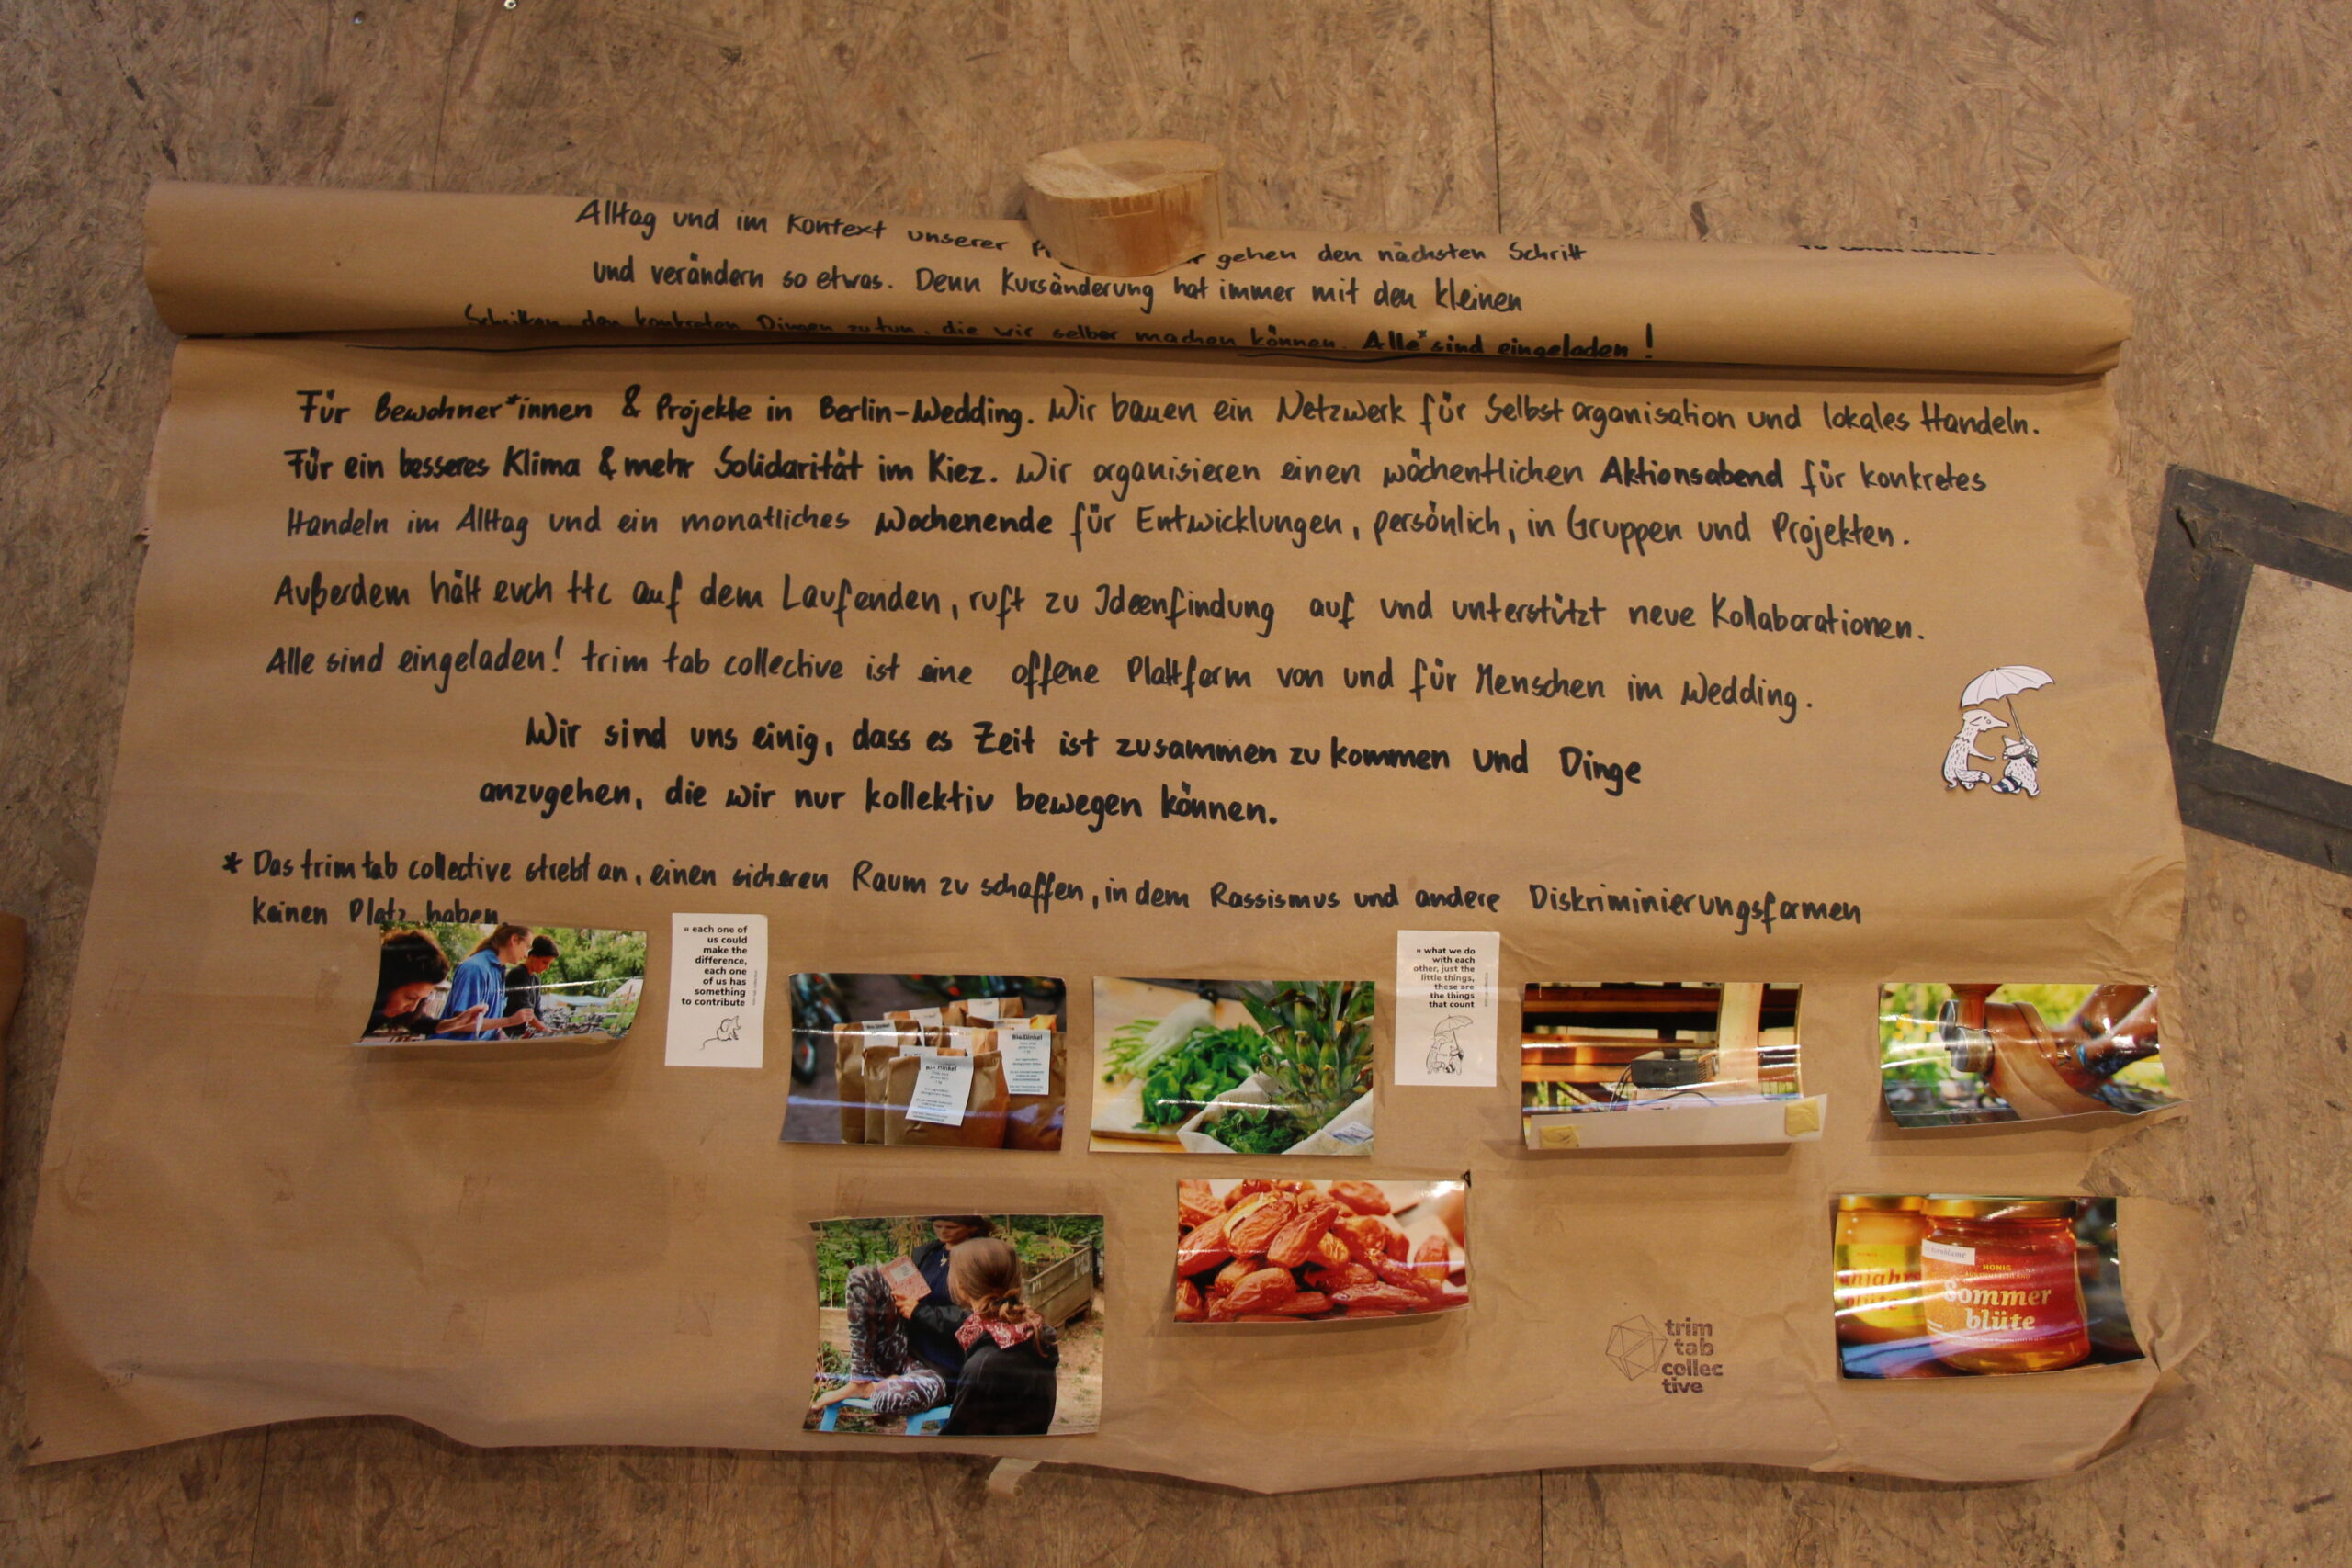 Alltag und im Kontext unserer gehen den nächsten Schritt
und verändern so etwas. Denn Kursänderung hat immer mit den kleinen
Schritten, den konkreten Dingen zu tun, die wir selber machen können. Alle* sind eingeladen!
Für Bewohner*innen & Projekte in Berlin-Wedding. Wir bauen ein Netzwerk für Selbstorganisation und lokales Handeln.
Für ein besseres Klima & mehr Solidarität im Kiez. Wir organisieren einen wöchentlichen Aktionsabend für konkretes
Handeln im Alltag und ein monatliches Wochenende für Entwicklungen, persönlich, in Gruppen und Projekten.
Außerdem hält euch ttc auf dem Laufenden, ruft zu Ideenfindung auf und unterstützt neue Kollaborationen.
Alle sind eingeladen! trim tab collective ist eine offene Plattform von und für Menschen im Wedding.
Wir sind uns einig, dass es Zeit ist zusammen zu kommen und Dinge
anzugehen, die wir nur kollektiv bewegen können.
* Das trim tab collective strebt an, einen sicheren Raum zu schaffen, in dem Rassismus und andere Diskriminierungsformen
keinen Platz haben.
» each one of
us could
make the
difference,
each one
of us has
something
to contribute
» what we do
with each
other, just the
little things,
these are
the things
that count
Bio Dinkel
Bio Dinkel
Bio Dinkel
HONIG
Sommer
blüte
trim
tab
collec
tive